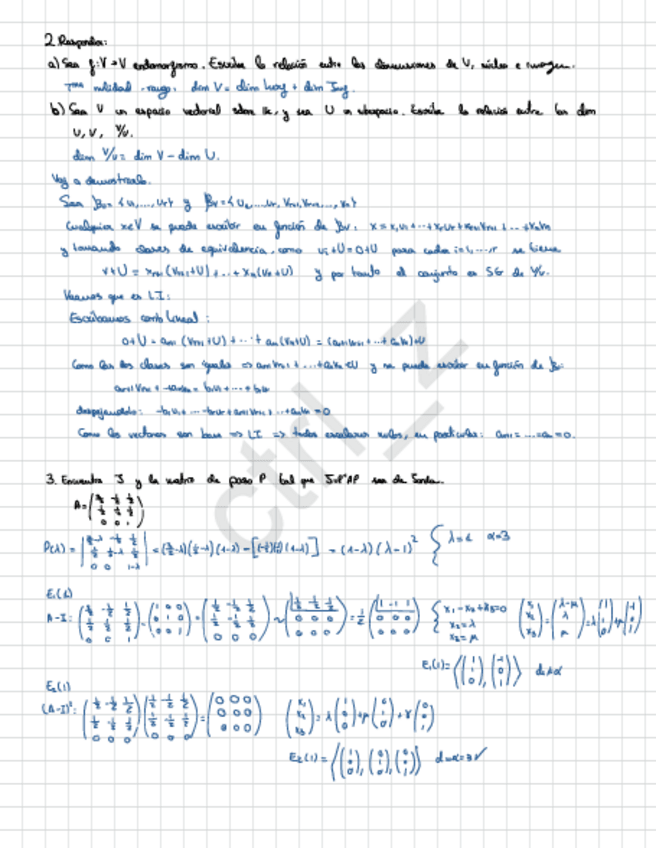 2. Responder:
a) Sea f: V→V endomorfismo. Escriba la relación entre las dimensiones de V, núcleo e imagen.
Tma nulidad-rango: dim V = dim ker f + dim Im f.
b) Sea V un espacio vectorial sobre K, y sea U un subespacio. Escriba la relación entre las dim
U, V, V/U.
dim V/U = dim V - dim U.
Voy a demostrarlo.
Sean Bu = {u1, ..., ur} y Bv = {u1, ..., ur, vr+1, vr+2, ..., vn}
Cualquier x∈V se puede escribir en función de Bv: x = x1u1 + ... + xrur + xr+1vr+1 + ... + xnvn
y tomando clases de equivalencia, como ui+U = 0+U para cada i=1, ..., r se tiene
v+U = xr+1(vr+1+U) + ... + xn(vn+U) y por tanto el conjunto es SG de V/U.
Veamos que es LI:
Escribamos comb lineal:
0+U = ar+1(vr+1+U) + ... + an(vn+U) = (ar+1vr+1 + ... + anvn)+U
Como las dos clases son iguales ⇒ ar+1vr+1 + ... + anvn ∈ U y se puede escribir en función de Bu:
ar+1vr+1 + ... + anvn = b1u1 + ... + brur
despejándolo: -b1u1 - ... - brur + ar+1vr+1 + ... + anvn = 0
Como los vectores son base ⇒ LI ⇒ todos escalares nulos, en particular: ar+1 = ... = an = 0.
3. Encuentra J y la matriz de paso P tal que J=P⁻¹AP sea de Jordan.
A = (3/2 -1/2 1/2
1/2 1/2 1/2
0 0 1)
P(λ) = |3/2-λ -1/2 1/2
1/2 1/2-λ 1/2
0 0 1-λ| = (3/2-λ)(1/2-λ)(1-λ) - [(-1/2)(1/2)(1-λ)] = (1-λ)(λ-1)² { λ=1 α=3
E1(1)
A-I: (3/2 -1/2 1/2
1/2 1/2 1/2
0 0 1) - (1 0 0
0 1 0
0 0 1) = (1/2 -1/2 1/2
1/2 -1/2 1/2
0 0 0) ~ (1/2 -1/2 1/2
0 0 0
0 0 0) = 1/2 (1 -1 1
0 0 0
0 0 0) { x1 - x2 + x3 = 0
x2 = λ
x3 = μ
(x1 x2 x3) = (λ-μ λ μ) = λ(1 1 0) + μ(-1 0 1)
E1(1) = ⟨(1 1 0), (-1 0 1)⟩ d≠α
E2(1)
(A-I)²: (1/2 -1/2 1/2
1/2 -1/2 1/2
0 0 0)(1/2 -1/2 1/2
1/2 -1/2 1/2
0 0 0) = (0 0 0
0 0 0
0 0 0) (x1 x2 x3) = λ(1 0 0) + μ(0 1 0) + γ(0 0 1)
E2(1) = ⟨(1 0 0), (0 1 0), (0 0 1)⟩ d=α=3 ✓
ctrl_z